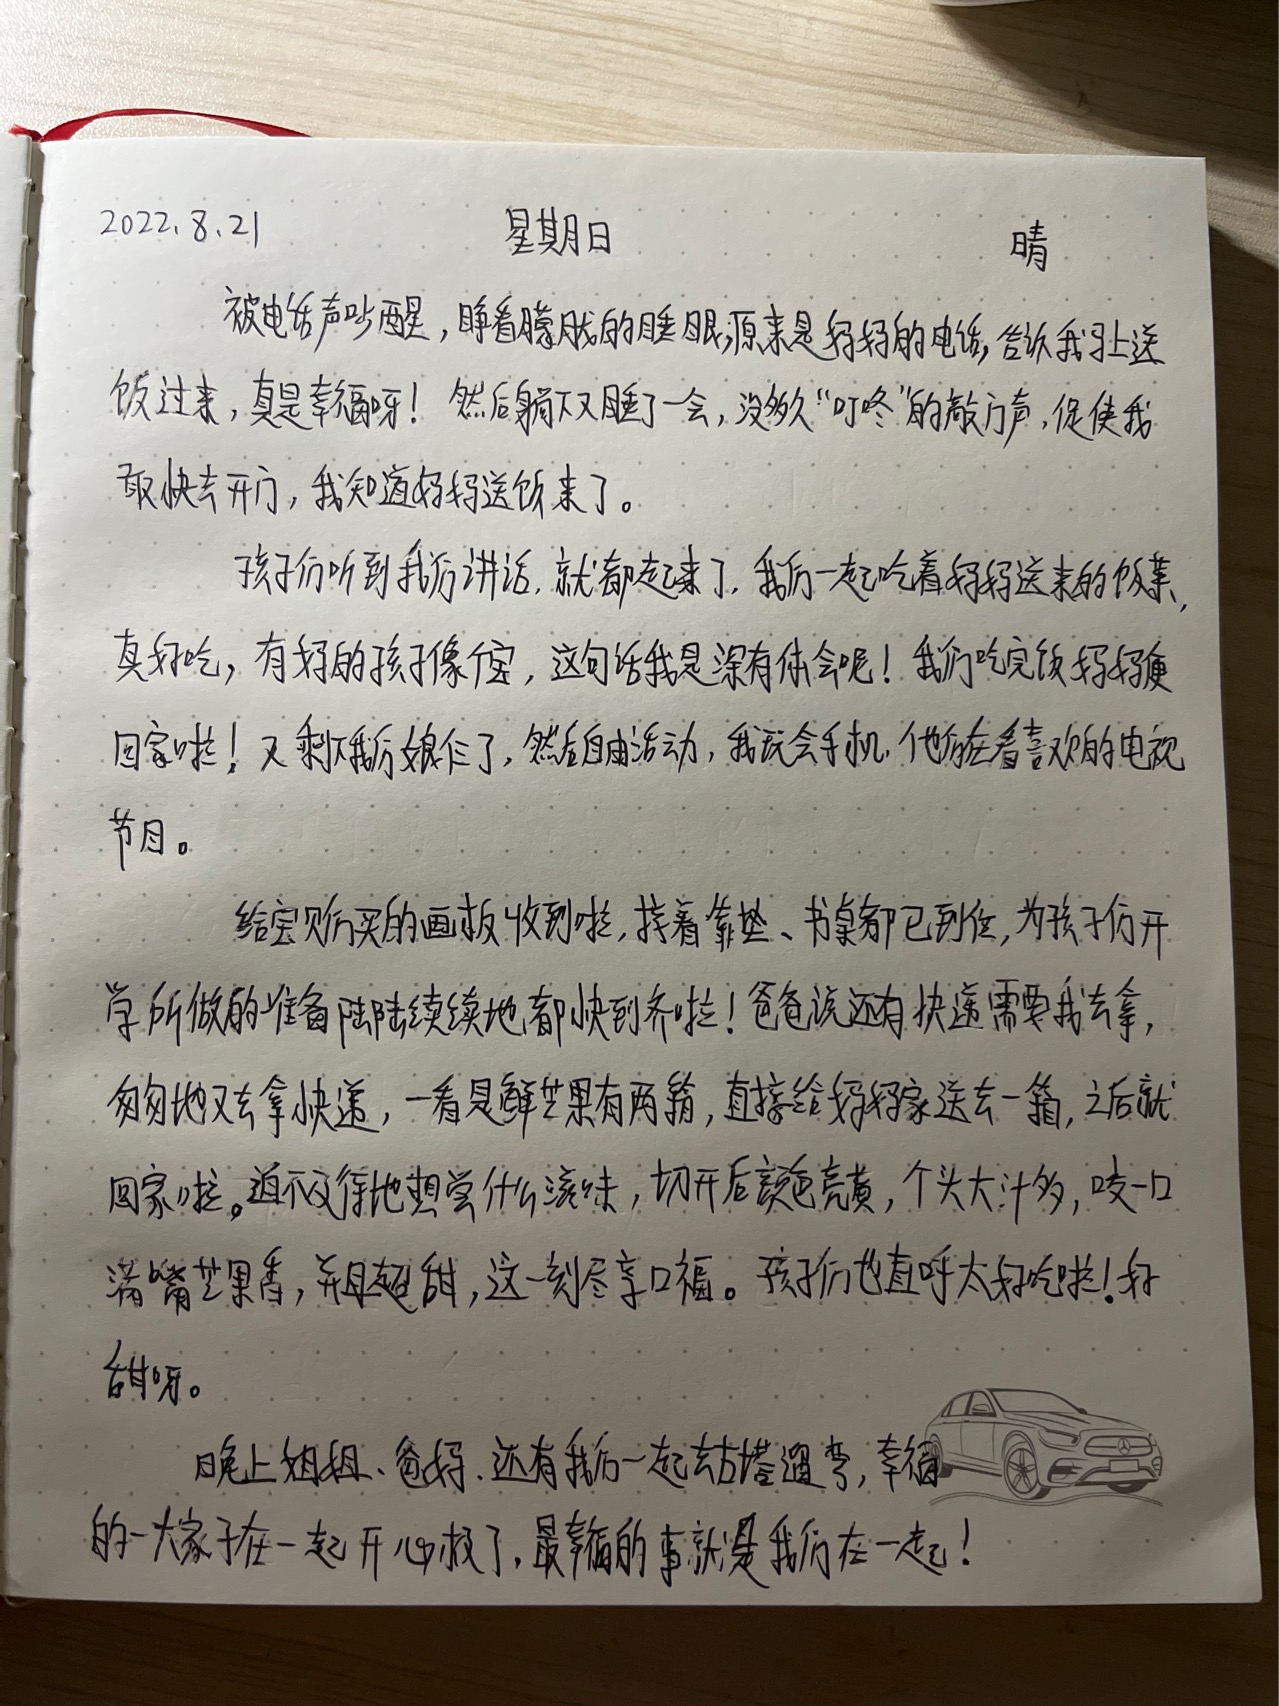 2022.8.21 星期日 晴
被电话声吵醒，睁着朦胧的睡眼，原来是妈妈的电话，告诉我马上送
饭过来，真是幸福呀！然后躺下又睡了一会，没多久“叮咚”的敲门声，促使我
敢快去开门，我知道妈妈送饭来了。
孩子们听到我们讲话，就都起来了，我们一起吃着妈妈送来的饭菜，
真好吃，有妈的孩子像个宝，这句话我是深有体会呢！我们吃完饭妈妈便
回家啦！又剩下我们娘仨了，然后自由活动，我玩会手机，他们在看喜欢的电视
节目。
给宝贝们买的画板收到啦，接着靠垫、书桌都已到位，为孩子们开
学所做的准备陆陆续续地都快到齐啦！爸爸说还有快递需要我去拿，
匆匆地又去拿快递，一看是鲜芒果有两箱，直接给妈妈家送去一箱，之后就
回家啦。迫不及待地想尝什么滋味，切开后颜色亮黄，个头大汁多，咬一口
满嘴芒果香，并且超甜，这一刻尽享口福。孩子们也直呼太好吃啦！好
甜呀。
晚上姐姐、爸妈、还有我们一起去古塔遛弯，幸福
的一大家子在一起开心极了，最幸福的事就是我们在一起！